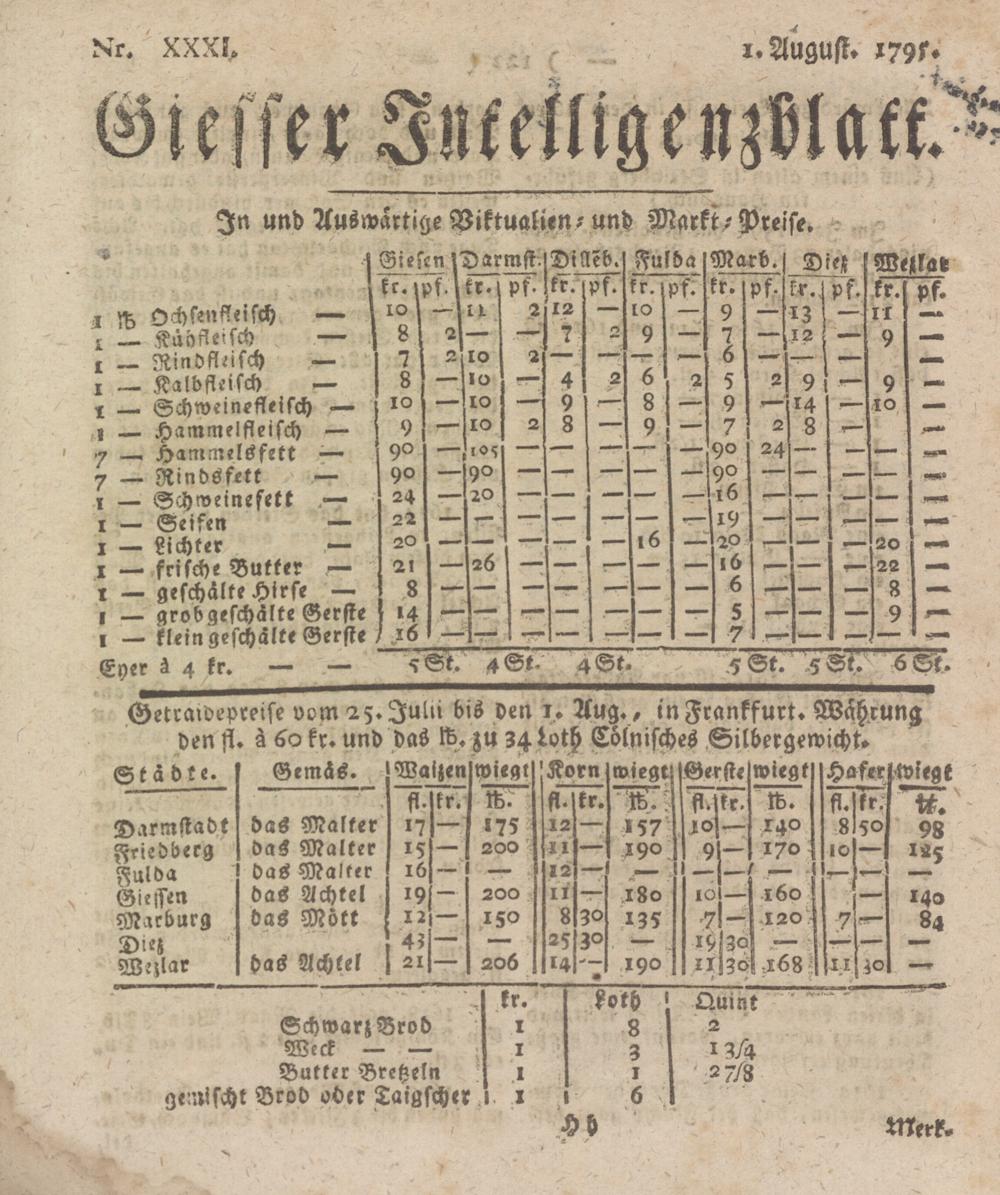 Nr. XXXI. 1. August. 1795.
Giesser Intelligenzblatt.
In und Auswärtige Viktualien- und Markt-Preise.
Giesen Darmst. Dilleb. Fulda Marb. Diez Wezlar
kr. pf. kr. pf. kr. pf. kr. pf. kr. pf. kr. pf. kr. pf.
1 ℔ Ochsenfleisch — 10 — 11 2 12 — 10 — 9 — 13 — 11 —
1 — Kühfleisch — 8 2 — — 7 2 9 — 7 — 12 — 9 —
1 — Rindfleisch — 7 2 10 2 — — — — 6 — — — —
1 — Kalbfleisch — 8 — 10 — 4 2 6 2 5 2 9 — 9 —
1 — Schweinefleisch — 10 — 10 — 9 — 8 — 9 — 14 — 10 —
1 — Hammelfleisch — 9 — 10 2 8 — 9 — 7 2 8 — —
7 — Hammelsfett — 90 — 105 — — — — — 90 24 — — — —
7 — Rindsfett — 90 — 90 — — — — — 90 — — — — —
1 — Schweinefett — 24 — 20 — — — — — 16 — — — — —
1 — Seifen — 22 — — — — — — — 19 — — — — —
1 — Lichter — 20 — — — — — 16 — 20 — — — 20 —
1 — frische Butter — 21 — 26 — — — — — 16 — — — 22 —
1 — geschälte Hirse — 8 — — — — — — — 6 — — — 8 —
1 — grob geschälte Gerste 14 — — — — — — — 5 — — — 9 —
1 — klein geschälte Gerste 16 — — — — — — — 7 — — — — —
Eyer à 4 kr. — — 5 St. 4 St. 4 St. 5 St. 5 St. 6 St.
Getraidepreise vom 25. Julii bis den 1. Aug., in Frankfurt. Währung
den fl. à 60 kr. und das ℔. zu 34 Loth Cölnisches Silbergewicht.
Städte. Gemäs. Waizen wiegt Korn wiegt Gerste wiegt Hafer wiegt
fl. kr. ℔. fl. kr. ℔. fl. kr. ℔. fl. kr. ℔.
Darmstadt das Malter 17 — 175 12 — 157 10 — 140 8 50 98
Friedberg das Malter 15 — 200 11 — 190 9 — 170 10 — 125
Fulda das Malter 16 — — 12 — — — — — — — —
Giessen das Achtel 19 — 200 11 — 180 10 — 160 — — 140
Marburg das Mött 12 — 150 8 30 135 7 — 120 7 — 84
Diez 43 — — 25 30 — 19 30 — — — —
Wezlar das Achtel 21 — 206 14 — 190 11 30 168 11 30 —
kr. Loth Quint
Schwarz Brod 1 8 2
Weck — — 1 3 1 3/4
Butter Bretzeln 1 1 2 7/8
gemischt Brod oder Taigscher 1 6
Hh Merk-